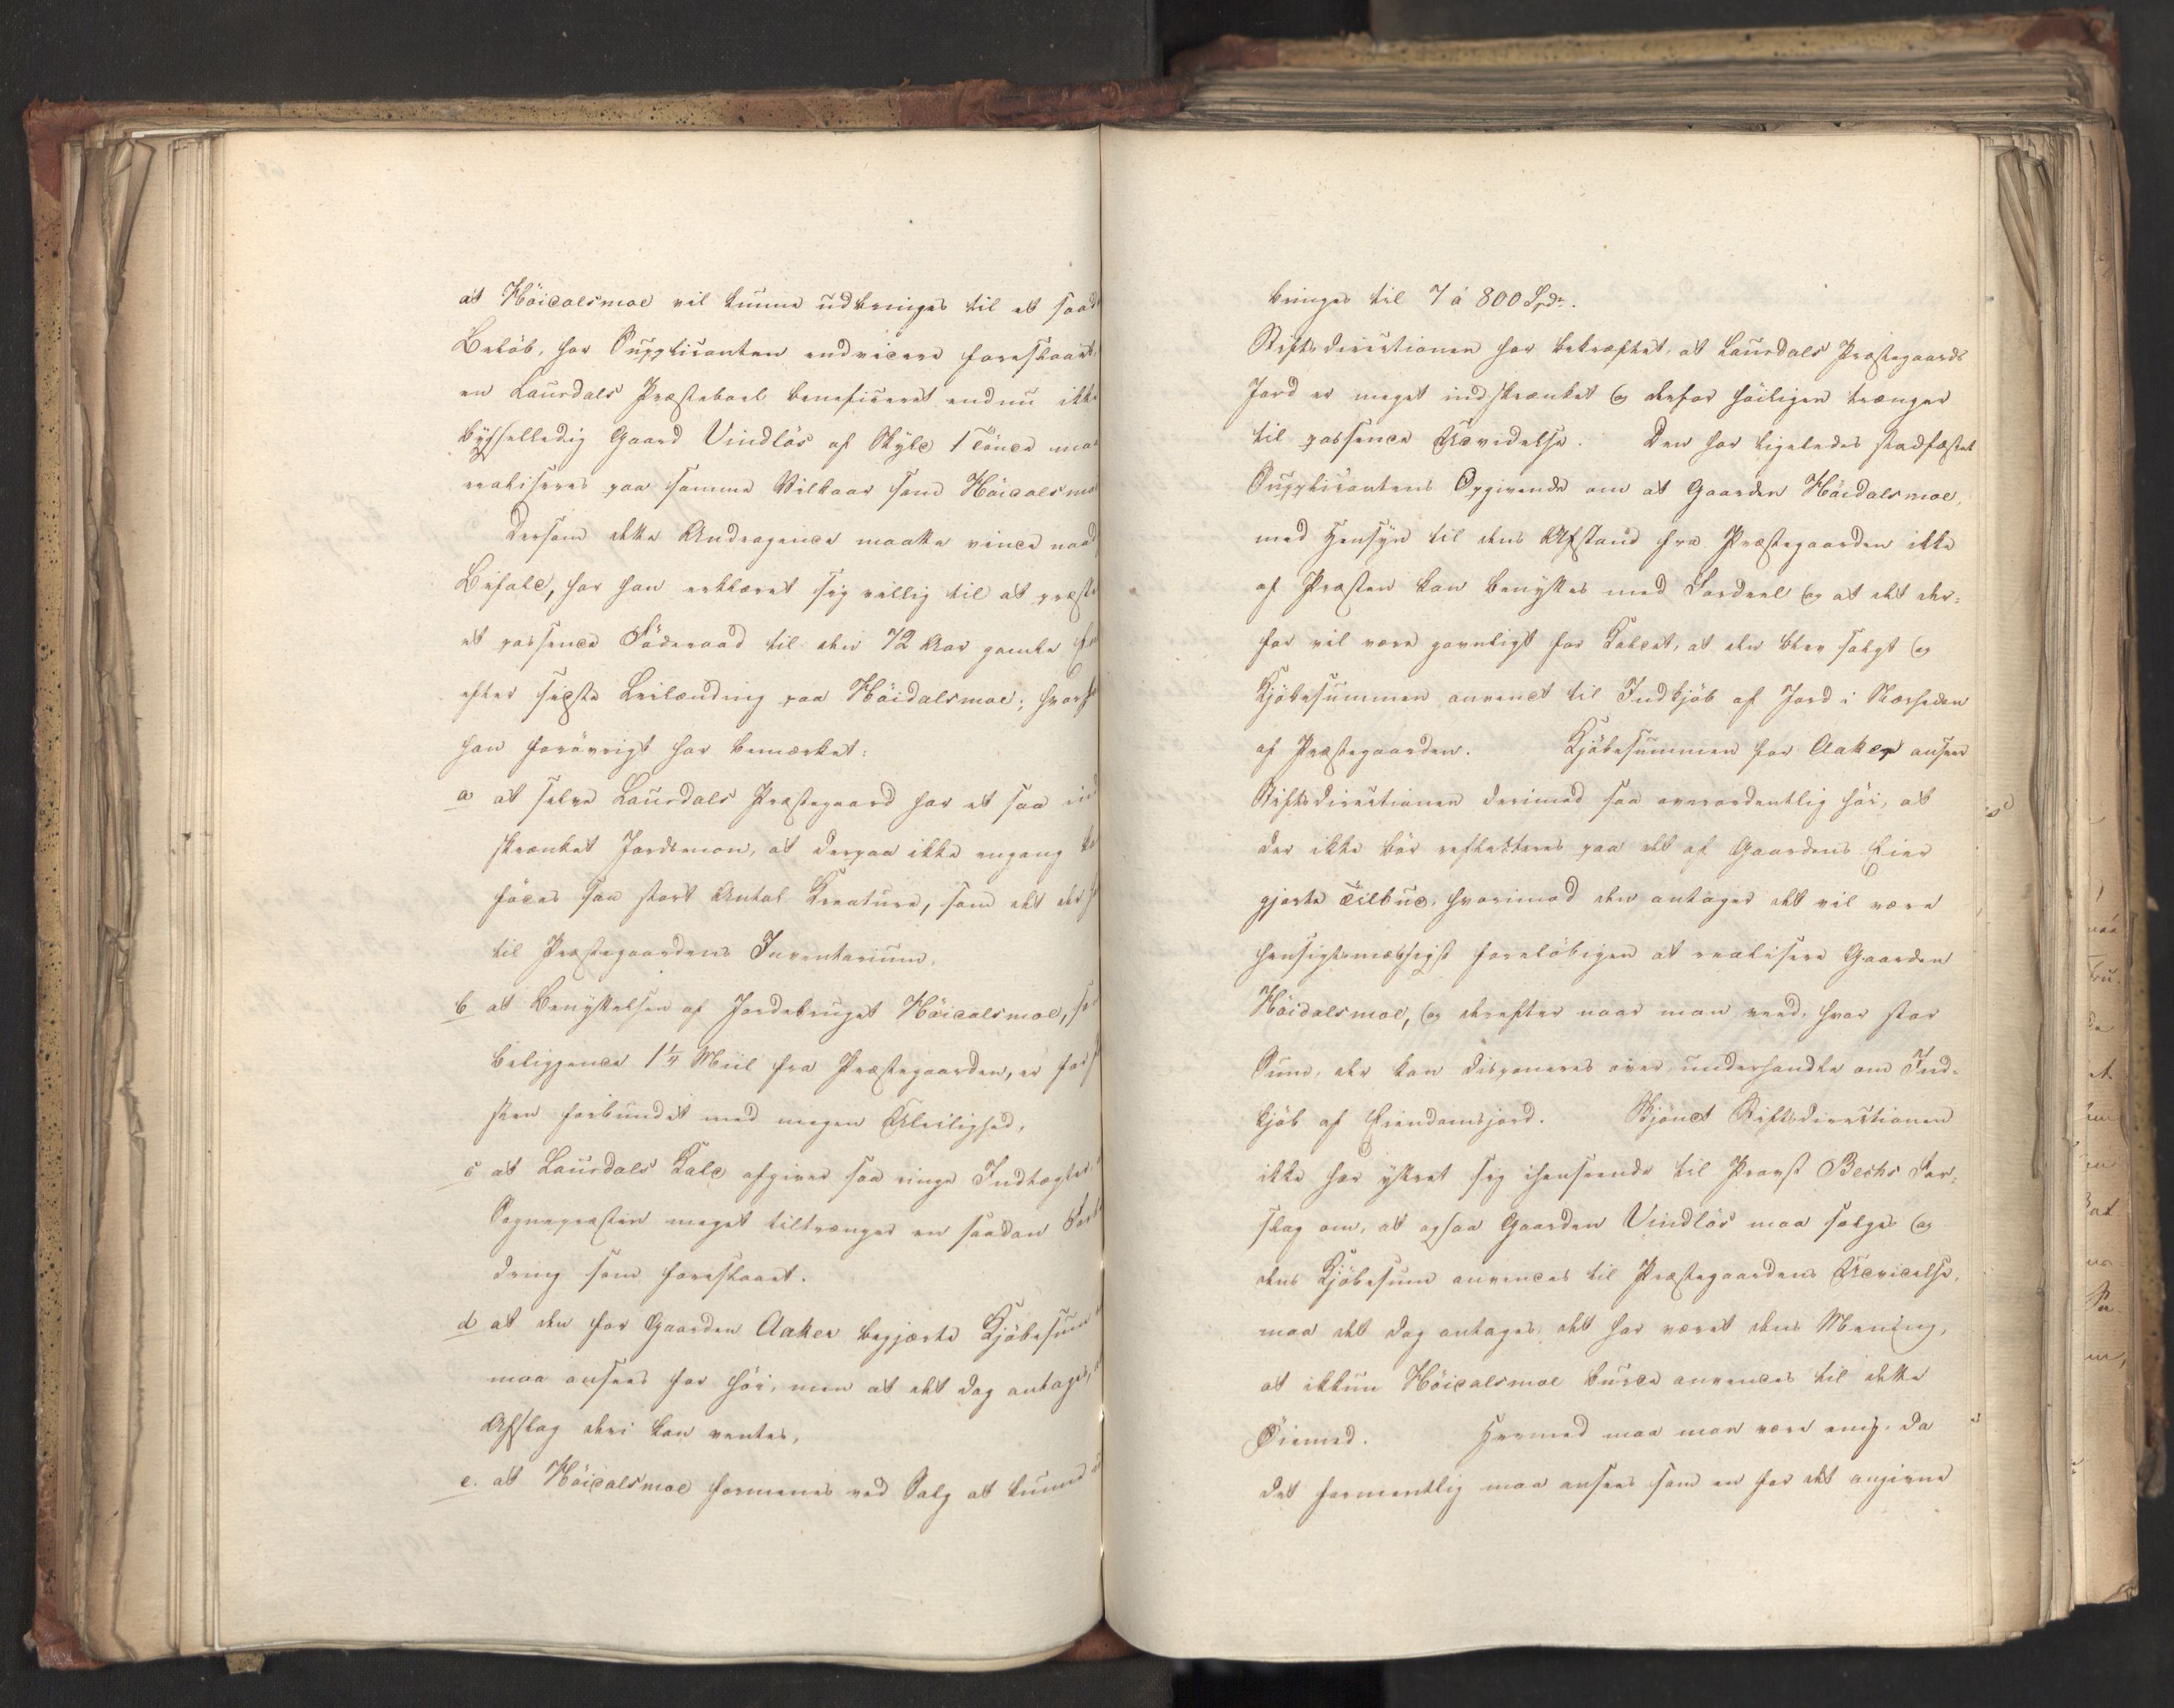 at Höidalsmoe vil kunne udbringes til et saad
Beløb, har Supplicanten endvidere foreslaaet,
en Laurdals Præstebord beneficeret endnu ikke
byxelledig Gaard Vindlös af Skyld 1 Tönde maa
realiseres paa samme Vilkaar som Höidalsmo
Dersom dette Andragende maatte vinde naad
Bifald, har han erklæret sig villig til at præste
et passende Föderaad til den 72 Aar gamle
efter sidste Leilænding paa Höidalsmoe; hvorh
han forövrigt har bemærket:
a at selve Laurdals Præstegaard har et saa ind
skrænket Jordsmon, at derpaa ikke engang ka
födes saa stort Antal Kreature, som det der h
til Præstegaardens Inventarium,
b at Benyttelsen af Jordebruget Höidalsmoe, so
beliggende 1¼ Miil fra Præstegaarden, er for P
sten forbundet med megen Uleilighed,
c at Laurdals Kald afgiver saa ringe Indtægter,
Sognepræsten meget tiltrænger en saadan Forb
dring som foreslaaet.
d at den for Gaarden Aaker begjærte Kjöbesum
maa ansees for höi, men at det dog antages,
Afslag deri kan ventes,
e. at Höidalsmoe formenes ved Salg at kunne
bringes til 7 á 800 Spdr.
Stiftsdirectionen har bekræftet, at Laurdals Præstegaards
Jord er meget indskrænket og derfor höiligen trænger
til passende Udvidelse. Den har ligeledes stadfæstet
Supplicantens Opgivende om at Gaarden Höidalsmoe,
med Hensyn til dens Afstand fra Præstegaarden ikke
af Præsten kan benyttes med Fordeel og at det der-
for vil være gavnligt for Kaldet, at den blev solgt og
Kjöbesummen anvendt til Indkjöb af Jord i Nærheden
af Præstegaarden. Kjöbesummen for Aaker anseer
Stiftsdirectionen derimod saa overordentlig höi, at
der ikke bör reflecteres paa det af Gaardens Eier
gjorte Tilbud, hvorimod den antager det vil være
hensigtsmæssigst foreløbigen at realisere Gaarden
Höidalsmoe, og derefter naar man veed, hvor stor
Sum, der kan disponeres over, underhandle om Ind-
kjöb af Eiendomsjord. Skjöndt Stiftsdirectionen
ikke har yttret sig ihenseende til Provst Bechs For-
slag om, at ogsaa Gaarden Vindlös maa sælges og
dens Kjöbesum anvendes til Præstegaardens Udvidelse,
maa det dog antages, det har været dens Mening,
at ikkun Höidalsmoe burde anvendes til dette
Öiemed. Hermed maa man være enig, da
det formentlig maa ansees som en for det angivne